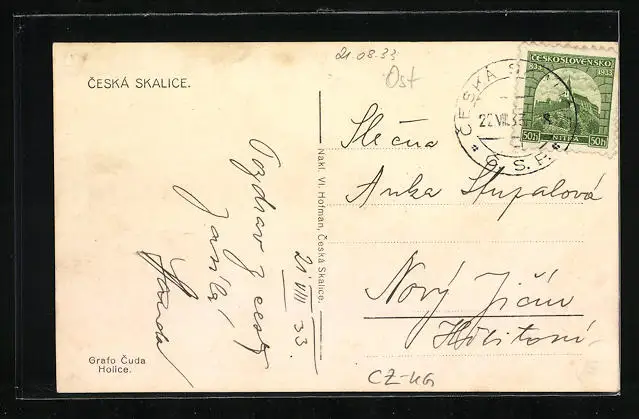 ČESKÁ SKALICE.
21.08.33
Ost
ČESKOSLOVENSKO
833 1933
NITRA
50h 50h
ČESKÁ
22.VIII.33
Č.S.R.
Slečna
Anka Stupalová
Nový Jičín
Pozdrav z cesty
21 VIII 33.
Nakl. Vl. Hofman, Česká Skalice.
Grafo Čuda
Holice.
CZ-UG